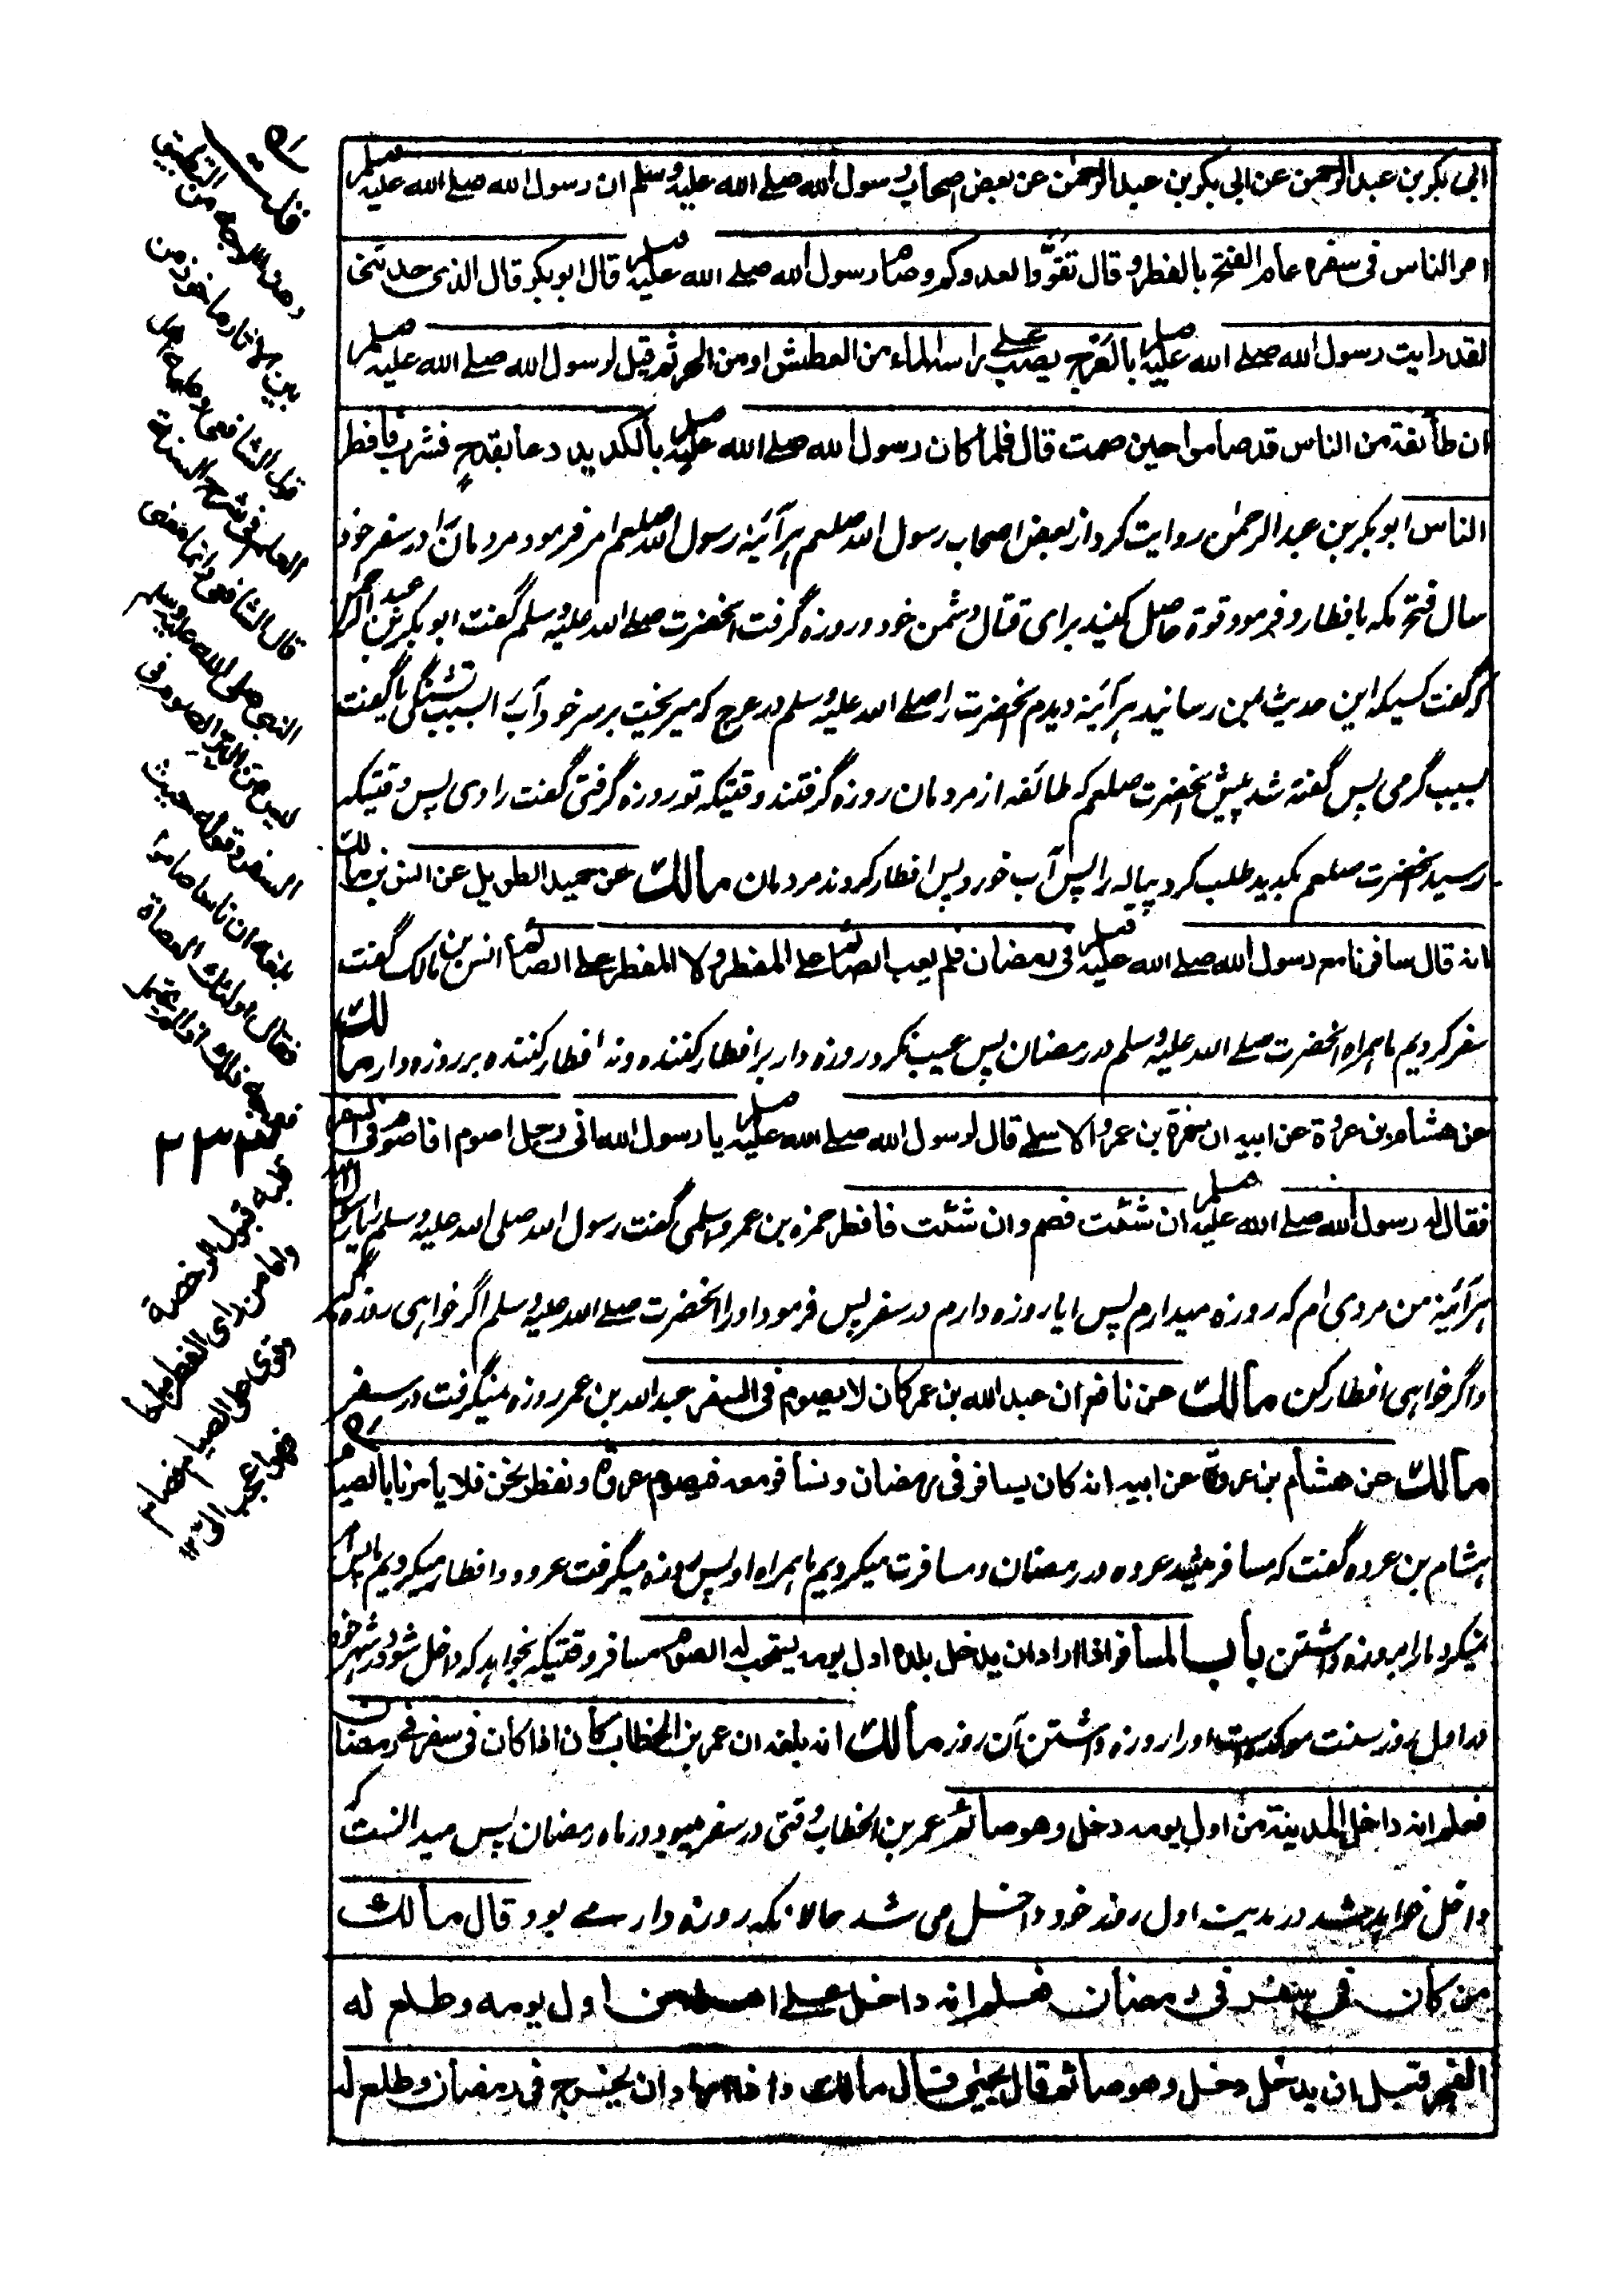 ابی بکر بن عبد الرحمن عن ابی بکر بن عبد الرحمن عن بعض اصحاب رسول الله صلے الله علیه وسلم ان رسول الله صلے الله علیه وسلم
امر الناس فی سفره عام الفتح بالفطر وقال تقوّوا لعدوکم وصام رسول الله صلے الله علیه وسلم قال ابو بکر قال الذی حدثنی
لقد رایت رسول الله صلے الله علیه وسلم بالعرج یصب علے راسه الماء من العطش او من الحر ثم قیل لرسول الله صلے الله علیه وسلم
ان طائفة من الناس قد صاموا حین صمت قال فلما کان رسول الله صلے الله علیه وسلم بالکدید دعا بقدحٍ فشرب فافطر
الناس ابو بکر بن عبد الرحمن روایت کرد از بعض اصحاب رسول الله صلعم هرآئینه رسول الله صلعم امر فرمود مردمان را در سفر خود
سال فتح مکه بافطار و فرمود قوة حاصل کنید برای قتال دشمن خود و روزه گرفت آنحضرت صلے الله علیه وسلم گفت ابو بکر بن عبد الرحمن
که گفت کسیکه این حدیث بمن رسانید هرآئینه دیدم آنحضرت را صلے الله علیه وسلم در عرج که میریخت بر سر خود آب را بسبب تشنگی یا گفت
بسبب گرمی پس گفته شد پیش آنحضرت صلعم که طائفه از مردمان روزه گرفتند وقتیکه تو روزه گرفتی گفت راوی پس وقتیکه
رسید آنحضرت صلعم بکدید طلب کرد پیاله را پس آب خورد پس افطار کردند مردمان مالک عن حمید الطویل عن انس بن مالک
انه قال سافرنا مع رسول الله صلے الله علیه وسلم فی رمضان فلم یعب الصائم علے المفطر ولا المفطر علے الصائم انس بن مالک گفت
سفر کردیم ما همراه آنحضرت صلے الله علیه وسلم در رمضان پس عیب نکرد روزه دار بر افطار کننده و نه افطار کننده بر روزه دار مالک
عن هشام بن عروة عن ابیه ان حمزة بن عمرو الاسلمے قال لرسول الله صلے الله علیه وسلم یا رسول الله انی رجل اصوم افاصوم فی السفر
فقال له رسول الله صلے الله علیه وسلم ان شئت فصم وان شئت فافطر حمزه بن عمرو اسلمی گفت رسول الله صلی الله علیه وسلم را یا رسول الله
هرآئینه من مردی ام که روزه میدارم پس ایا روزه دارم در سفر پس فرمود او را آنحضرت صلے الله علیه وسلم اگر خواهی روزه گیر
و اگر خواهی افطار کن مالک عن نافع ان عبد الله بن عمر کان لا یصوم فی السفر عبد الله بن عمر روزه نمیگرفت در سفر
مالک عن هشام بن عروة عن ابیه انه کان یسافر فی رمضان ونسافر معه فیصوم عروة ونفطر نحن فلا یأمرنا بالصیام
هشام بن عروه گفت که مسافر میشد عروه در رمضان و مسافرت میکردیم ما همراه او پس روزه میگرفت عروه و افطار میکردیم ما پس امر
نمیکرد ما را بروزه داشتن باب المسافر اذا اراد ان یدخل بلده اول یومه یستحب له الصوم مسافر وقتیکه بخواهد که داخل شود در شهر خود
در اول روز سنت موکد است او را روزه داشتن آن روز مالک انه بلغه ان عمر بن الخطاب کان اذا کان فی سفر فی رمضان
فعلم انه داخل المدینة من اول یومه دخل وهو صائم عمر بن الخطاب وقتی در سفر میبود در ماه رمضان پس میدانست که
داخل خواهد شد در مدینه اول روز خود داخل می شد حالانکه روزه دار مے بود قال مالک
من کان فی سفر فی رمضان فعلم انه داخل علے اهله من اول یومه وطلع له
الفجر قبل ان یدخل دخل وهو صائم قال یحیی قال مالک واذا اراد ان یخرج فی رمضان وطلع له
قلت
وهذا الاوجه من التطبیق
بین الآثار ماخوذ من
قول الشافعی
العلم فی شرح السنة
قال الشافعی وانما معنی قول
النبی صلی الله علیه وسلم
لیس من البر الصوم فی
السفر وقوله حیث
بلغه ان ناسا صاموا
فقال اولئک العصاة
ذلک اذا لم یحتمل
قلبه قبول الرخصة
واما من رای الفطر مباحا
وقوی علی الصیام فصام
فهو اعجب الیّ ۱۲